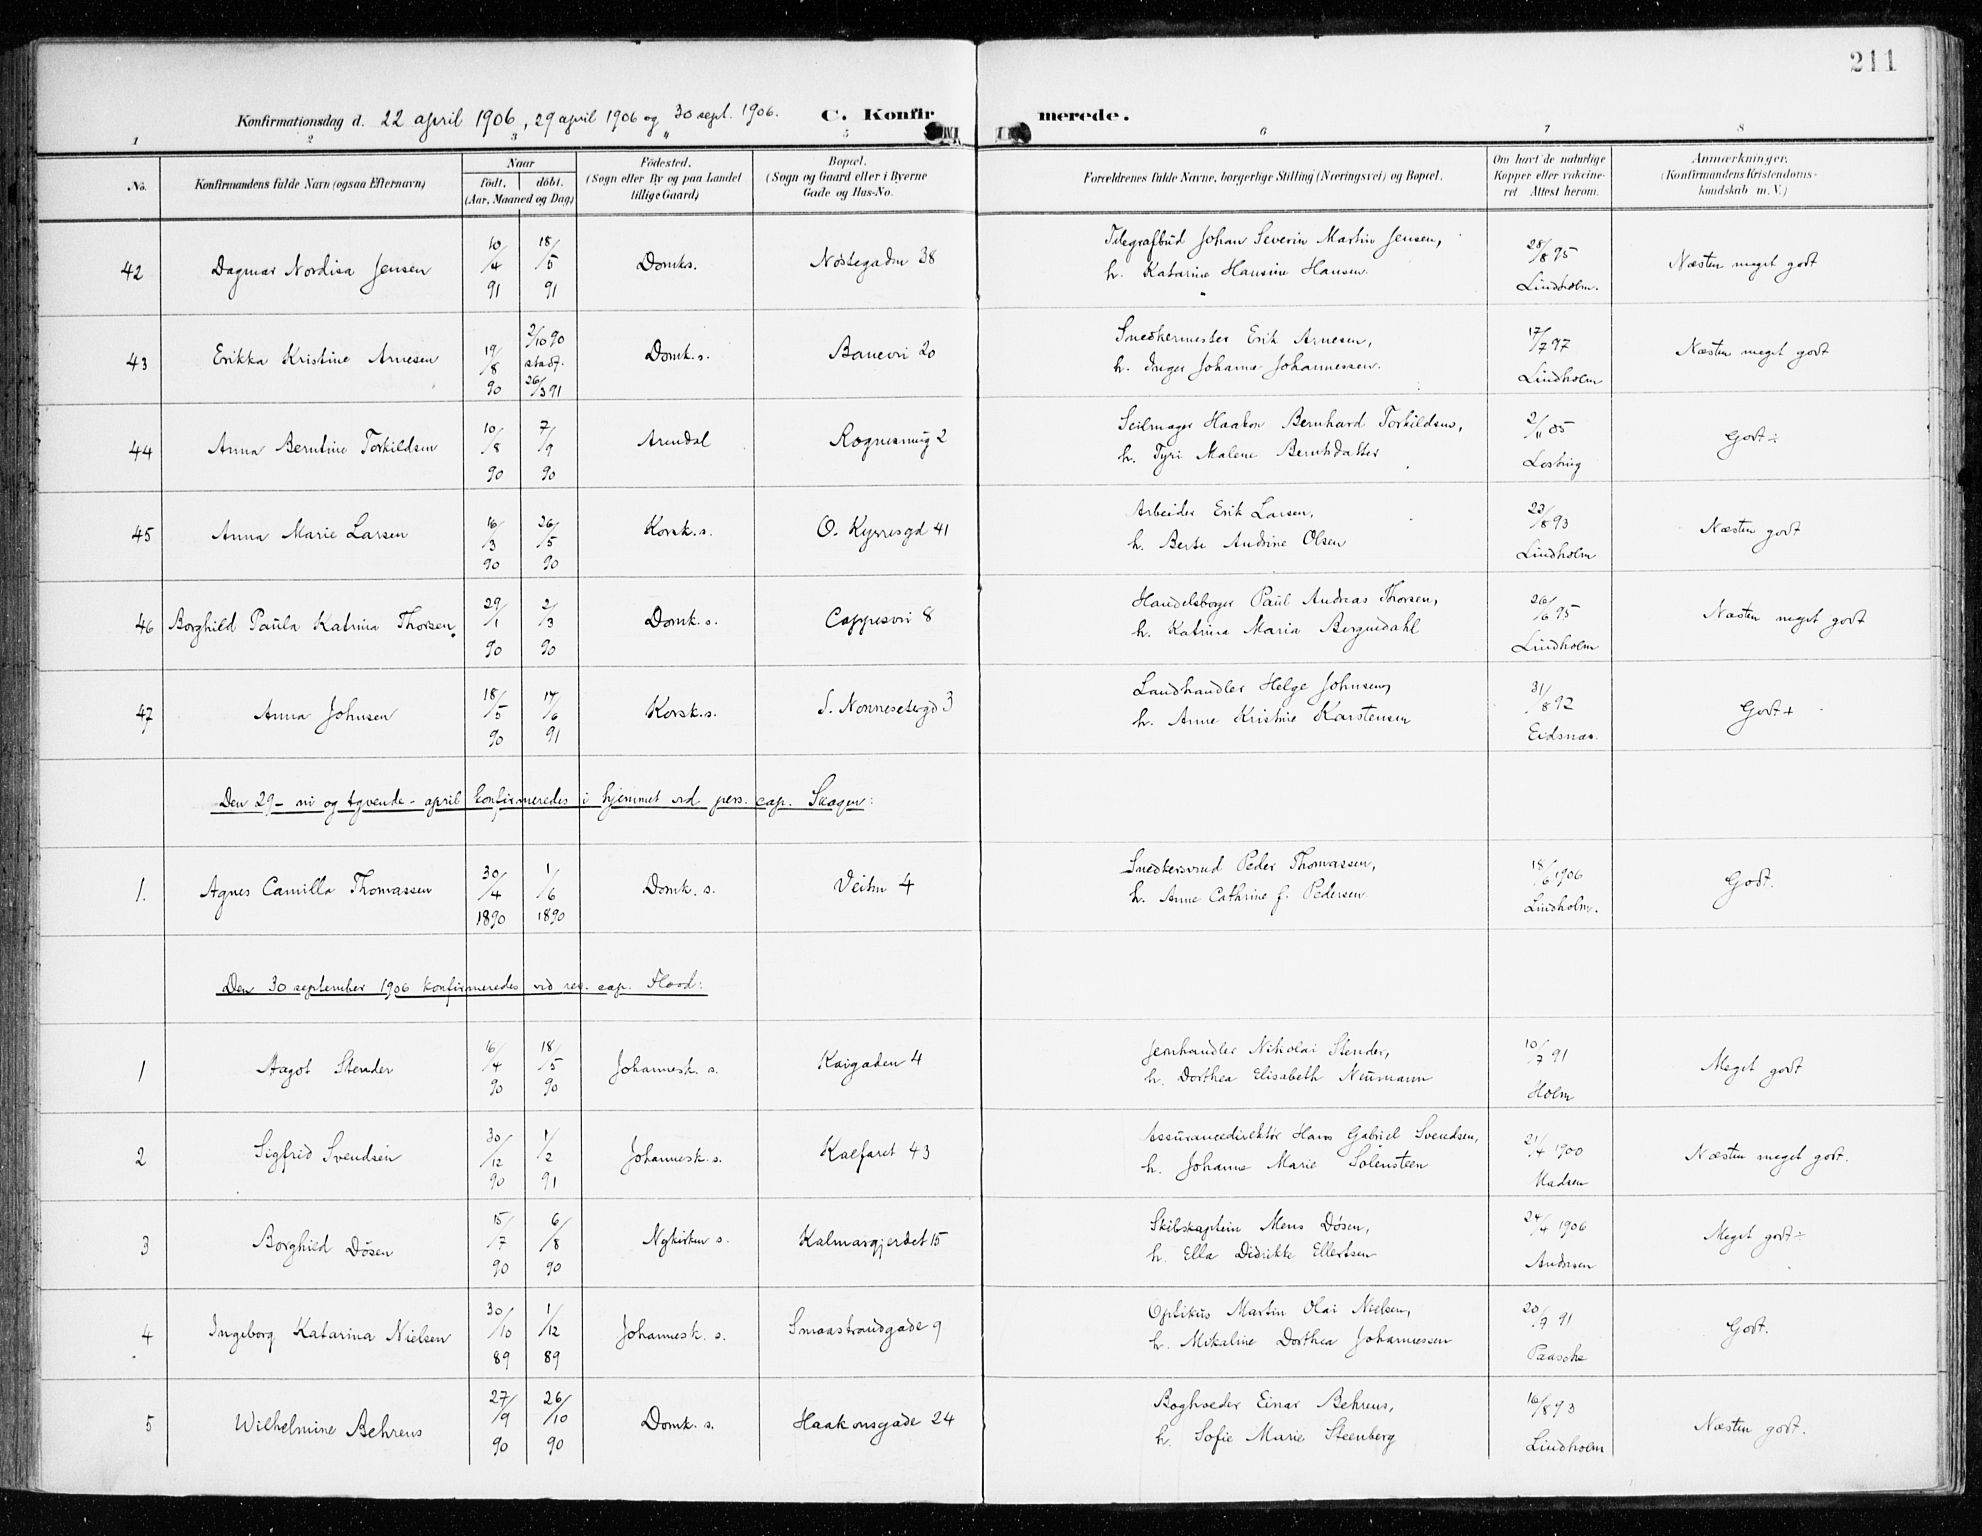 211
Konfirmationsdag d. 22 april 1906, 29 april 1906 og 30 sept. 1906. C. Konfirmerede.
1 2 3 5 6 7 8
No. Konfirmandens fulde Navn (ogsaa Efternavn) Naar født, døbt. (Aar, Maaned og Dag) Fødested. (Sogn eller By og paa Landet tillige Gaard) Bopæl. (Sogn og Gaard eller i Byerne Gade og Hus-No. Forældrenes fulde Navne, borgerlige Stilling (Næringsvei) og Bopæl. Om havt de naturlige Kopper eller vakcineret. Attest herom. Anmærkninger. (Konfirmandens Kristendomskundskab m. V.)
42 Dagmar Nordisa Jensen 10/4 91 18/5 91 Domks. Nøstegaden 38 Telegrafbud Johan Severin Martin Jensen, h. Katarine Hansine Hansen 28/8 95 Lindholm. Næsten meget godt
43 Erikka Kristine Arnesen 19/8 90 2/10 90 stadf. 26/3 91 Domk.s. Banevei 20 Snedkermester Erik Arnesen, h. Inger Johanne Johannessen. 17/7 97 Lindholm Næsten meget godt
44 Anna Berntine Torkildsen 10/8 90 7/9 90 Arendal Rognesmug 2 Seilmager Haakon Bernhard Torkildsen, h. Tyri Malene Berntsdatter 2/11 05 Godt ÷
45 Anna Marie Larsen 16/3 90 26/5 90 Korsk.s. O. Kyrresgd 41 Arbeider Erik Larsen, h. Berte Andrine Olsen 23/8 93 Lindholm Næsten godt
46 Borghild Paula Katrina Thorsen. 29/1 90 2/3 90 Domk.s. Cappesvei 8 Handelsborger Paul Andreas Thorsen, h. Katrina Maria Berguedahl 26/6 95 Lindholm Næsten meget godt
47 Anna Johnsen 18/5 90 14/6 91 Korsk.s. S. Nonnesetergd 3 Landhandler Helge Johnsen, h. Anne Kristine Karstensen 31/8 92 Eidsnæs. Godt +
Den 29 - ni og tyvende - april konfirmeredes i hjemmet ved pers. cap. Skagen:
1. Agnes Camilla Thomassen 30/4 1890 1/6 1890 Domk.s. Veiten 4 Snedkersvend Peder Thomassen, h. Anne Cathrine f. Pedersen 18/6 1906 Lindholm. Godt.
Den 30 september 1906 konfirmeredes ved res. cap. Flood:
1 Aagot Stender 16/4 90 18/5 90 Johannesk.s. Kaigaden 4 Jernhandler Nikolai Stender, h. Dorthea Elisabeth Neumann 10/7 91 Holm Meget godt
2 Sigfrid Svendsen 30/12 90 1/2 91 Johannesk.s. Kalfaret 43 Assurancedirektør Hans Gabriel Svendsen, h. Johanne Marie Solensteen 21/4 1900 Madsen Næsten meget godt.
3 Borghild Døsen 15/7 90 6/8 90 Nykirken s. Kalmargjerdet 15 Skibskaptein Mons Døsen, h. Ella Didrikke Ellertsen 24/4 1906 Andersen Meget godt ÷
4 Ingeborg Katarina Nielsen 30/10 89 1/12 89 Johannesk.s. Smaastrandgade 9 Optikus Martin Olai Nielsen, h. Mikaline Dorthea Johannessen 20/7 91 Paasche Godt.
5 Wilhelmine Behrens 27/9 90 26/10 90 Domk.s. Haakonsgade 24 Bogholder Einar Behrens, h. Sofie Marie Steenberg 16/8 93 Lindholm Næsten godt.